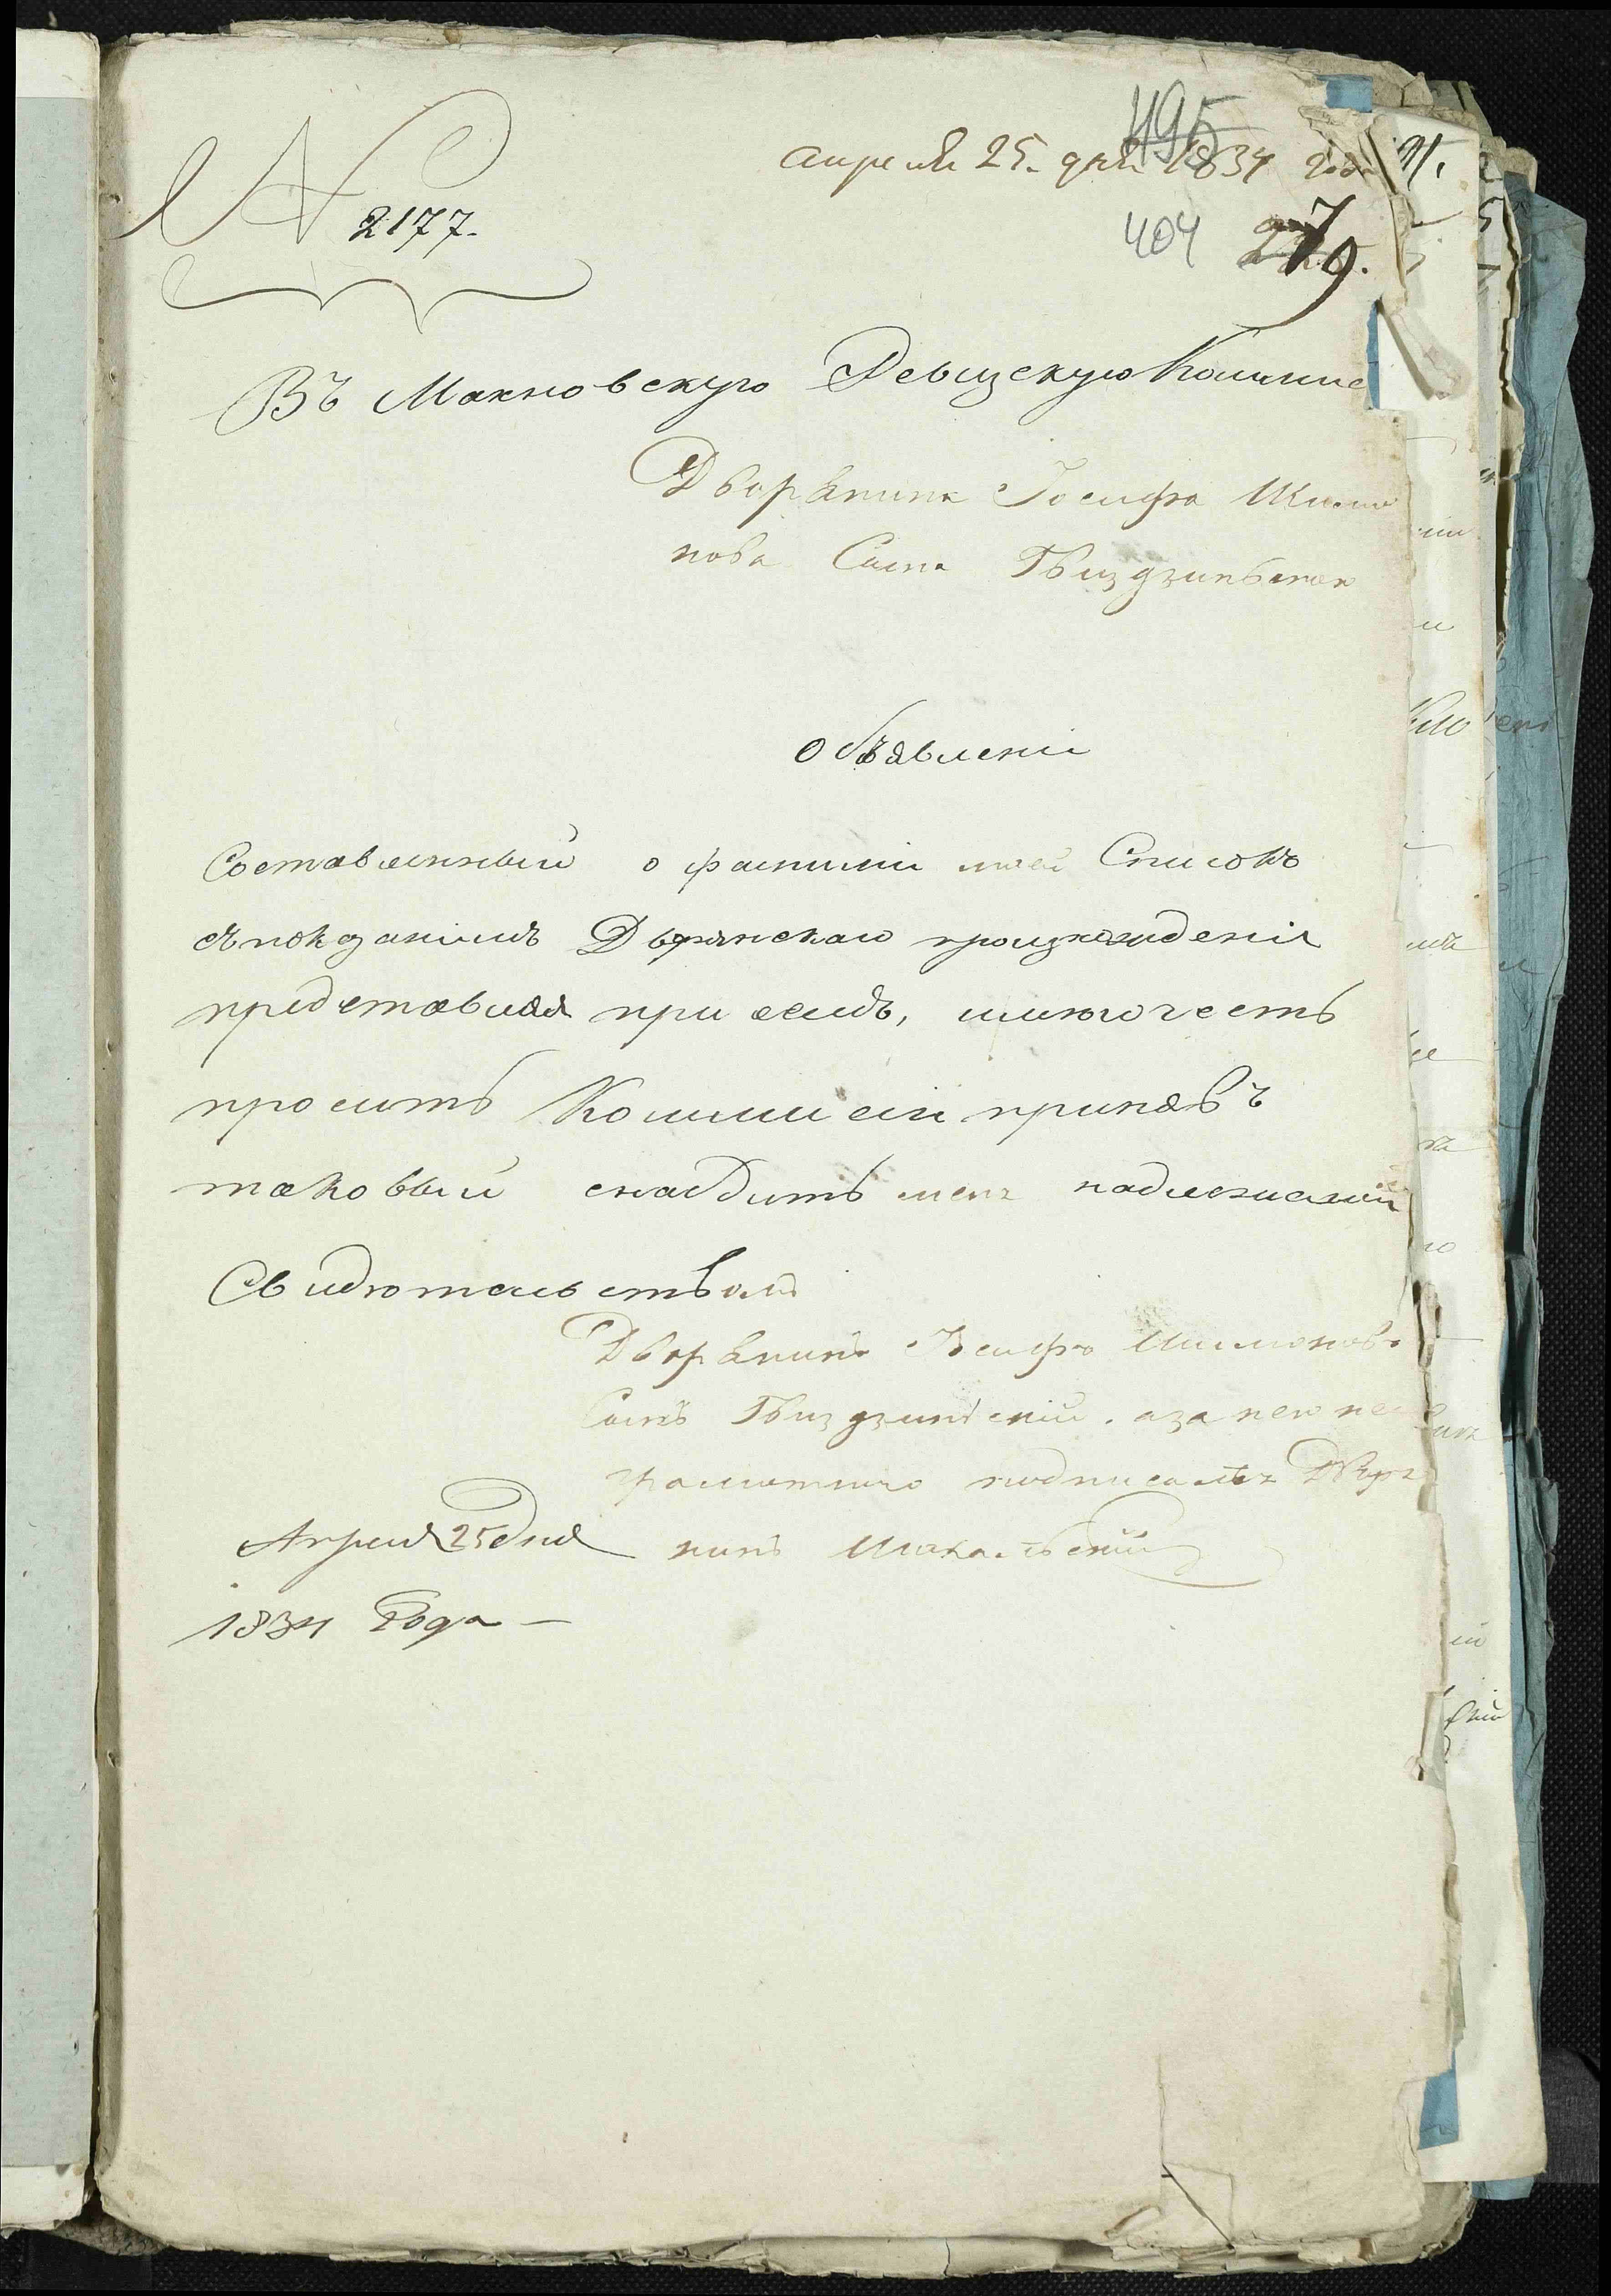 495
апреля 25. дня 1834 года
№ 2177.
404 79.
Въ Махновскую Ревизскую Коммис
Дворянина Іосифа Шимо
нова Сына Гвиздзинскаго
Объявленіе
Составленный о фамиліи моей Списокъ
съ показаніемъ Дворянскаго произхожденія
представляя при семъ, имѣю честь
просить Коммисіи принявъ
таковый снабдить меня надлежащимъ
Свидѣтельствомъ
Дворянинъ Іосифъ Шимоновъ
Сынъ Гвиздзинскій. а за него не
грамотного подписался Дворя
нинъ
Апреля 25 дня
1834 Года —